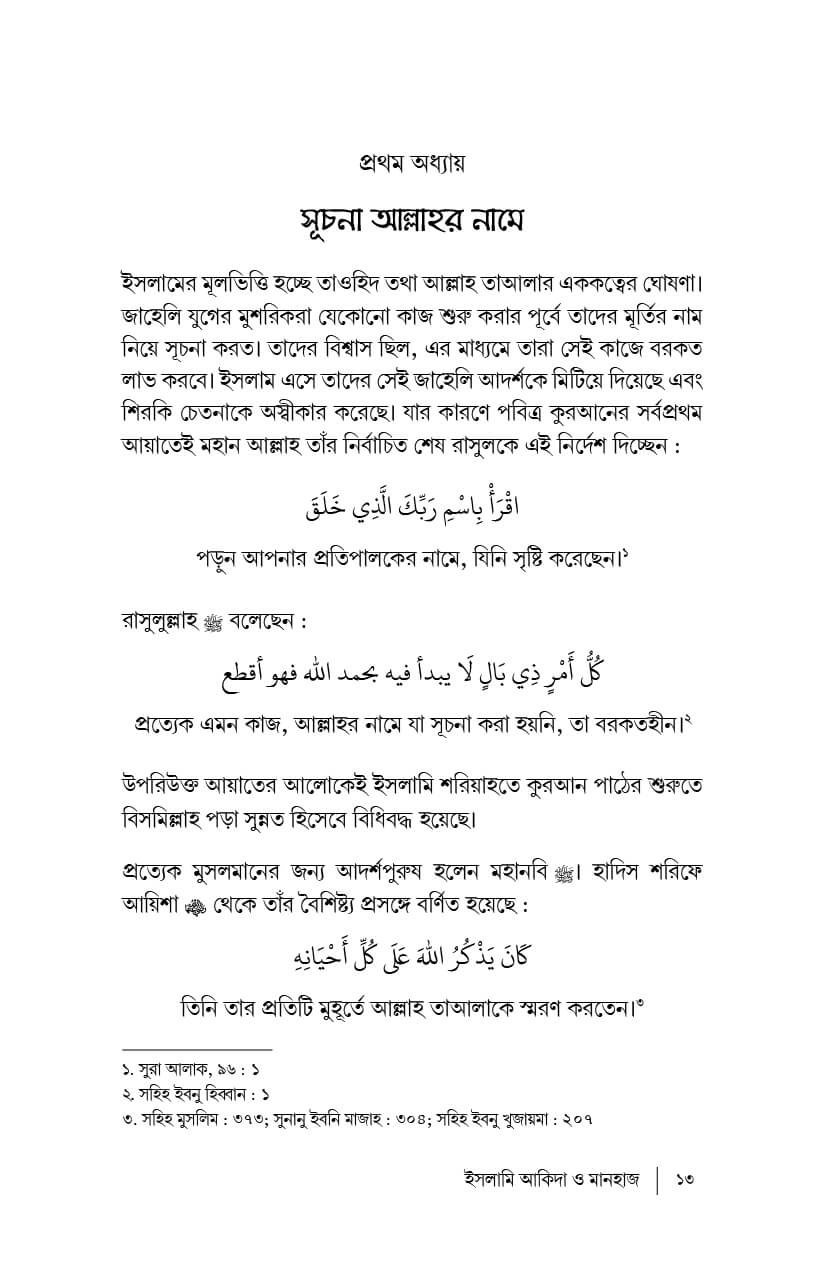 প্রথম অধ্যায়
সূচনা আল্লাহর নামে
ইসলামের মূলভিত্তি হচ্ছে তাওহিদ তথা আল্লাহ তাআলার এককত্বের ঘোষণা।
জাহেলি যুগের মুশরিকরা যেকোনো কাজ শুরু করার পূর্বে তাদের মূর্তির নাম
নিয়ে সূচনা করত। তাদের বিশ্বাস ছিল, এর মাধ্যমে তারা সেই কাজে বরকত
লাভ করবে। ইসলাম এসে তাদের সেই জাহেলি আদর্শকে মিটিয়ে দিয়েছে এবং
শিরকি চেতনাকে অস্বীকার করেছে। যার কারণে পবিত্র কুরআনের সর্বপ্রথম
আয়াতেই মহান আল্লাহ তাঁর নির্বাচিত শেষ রাসুলকে এই নির্দেশ দিচ্ছেন :
اقْرَأْ بِاسْمِ رَبِّكَ الَّذِي خَلَقَ
পড়ুন আপনার প্রতিপালকের নামে, যিনি সৃষ্টি করেছেন।১
রাসুলুল্লাহ ﷺ বলেছেন :
كُلُّ أَمْرٍ ذِي بَالٍ لَا يبدأ فيه بحمد الله فهو أقطع
প্রত্যেক এমন কাজ, আল্লাহর নামে যা সূচনা করা হয়নি, তা বরকতহীন।২
উপরিউক্ত আয়াতের আলোকেই ইসলামি শরিয়াহতে কুরআন পাঠের শুরুতে
বিসমিল্লাহ পড়া সুন্নত হিসেবে বিধিবদ্ধ হয়েছে।
প্রত্যেক মুসলমানের জন্য আদর্শপুরুষ হলেন মহানবি ﷺ। হাদিস শরিফে
আয়িশা থেকে তাঁর বৈশিষ্ট্য প্রসঙ্গে বর্ণিত হয়েছে :
كَانَ يَذْكُرُ اللهَ عَلَى كُلِّ أَحْيَانِهِ
তিনি তার প্রতিটি মুহূর্তে আল্লাহ তাআলাকে স্মরণ করতেন।৩
১. সুরা আলাক, ৯৬ : ১
২. সহিহ ইবনু হিব্বান : ১
৩. সহিহ মুসলিম : ৩৭৩; সুনানু ইবনি মাজাহ : ৩০৪; সহিহ ইবনু খুজায়মা : ২০৭
ইসলামি আকিদা ও মানহাজ | ১৩